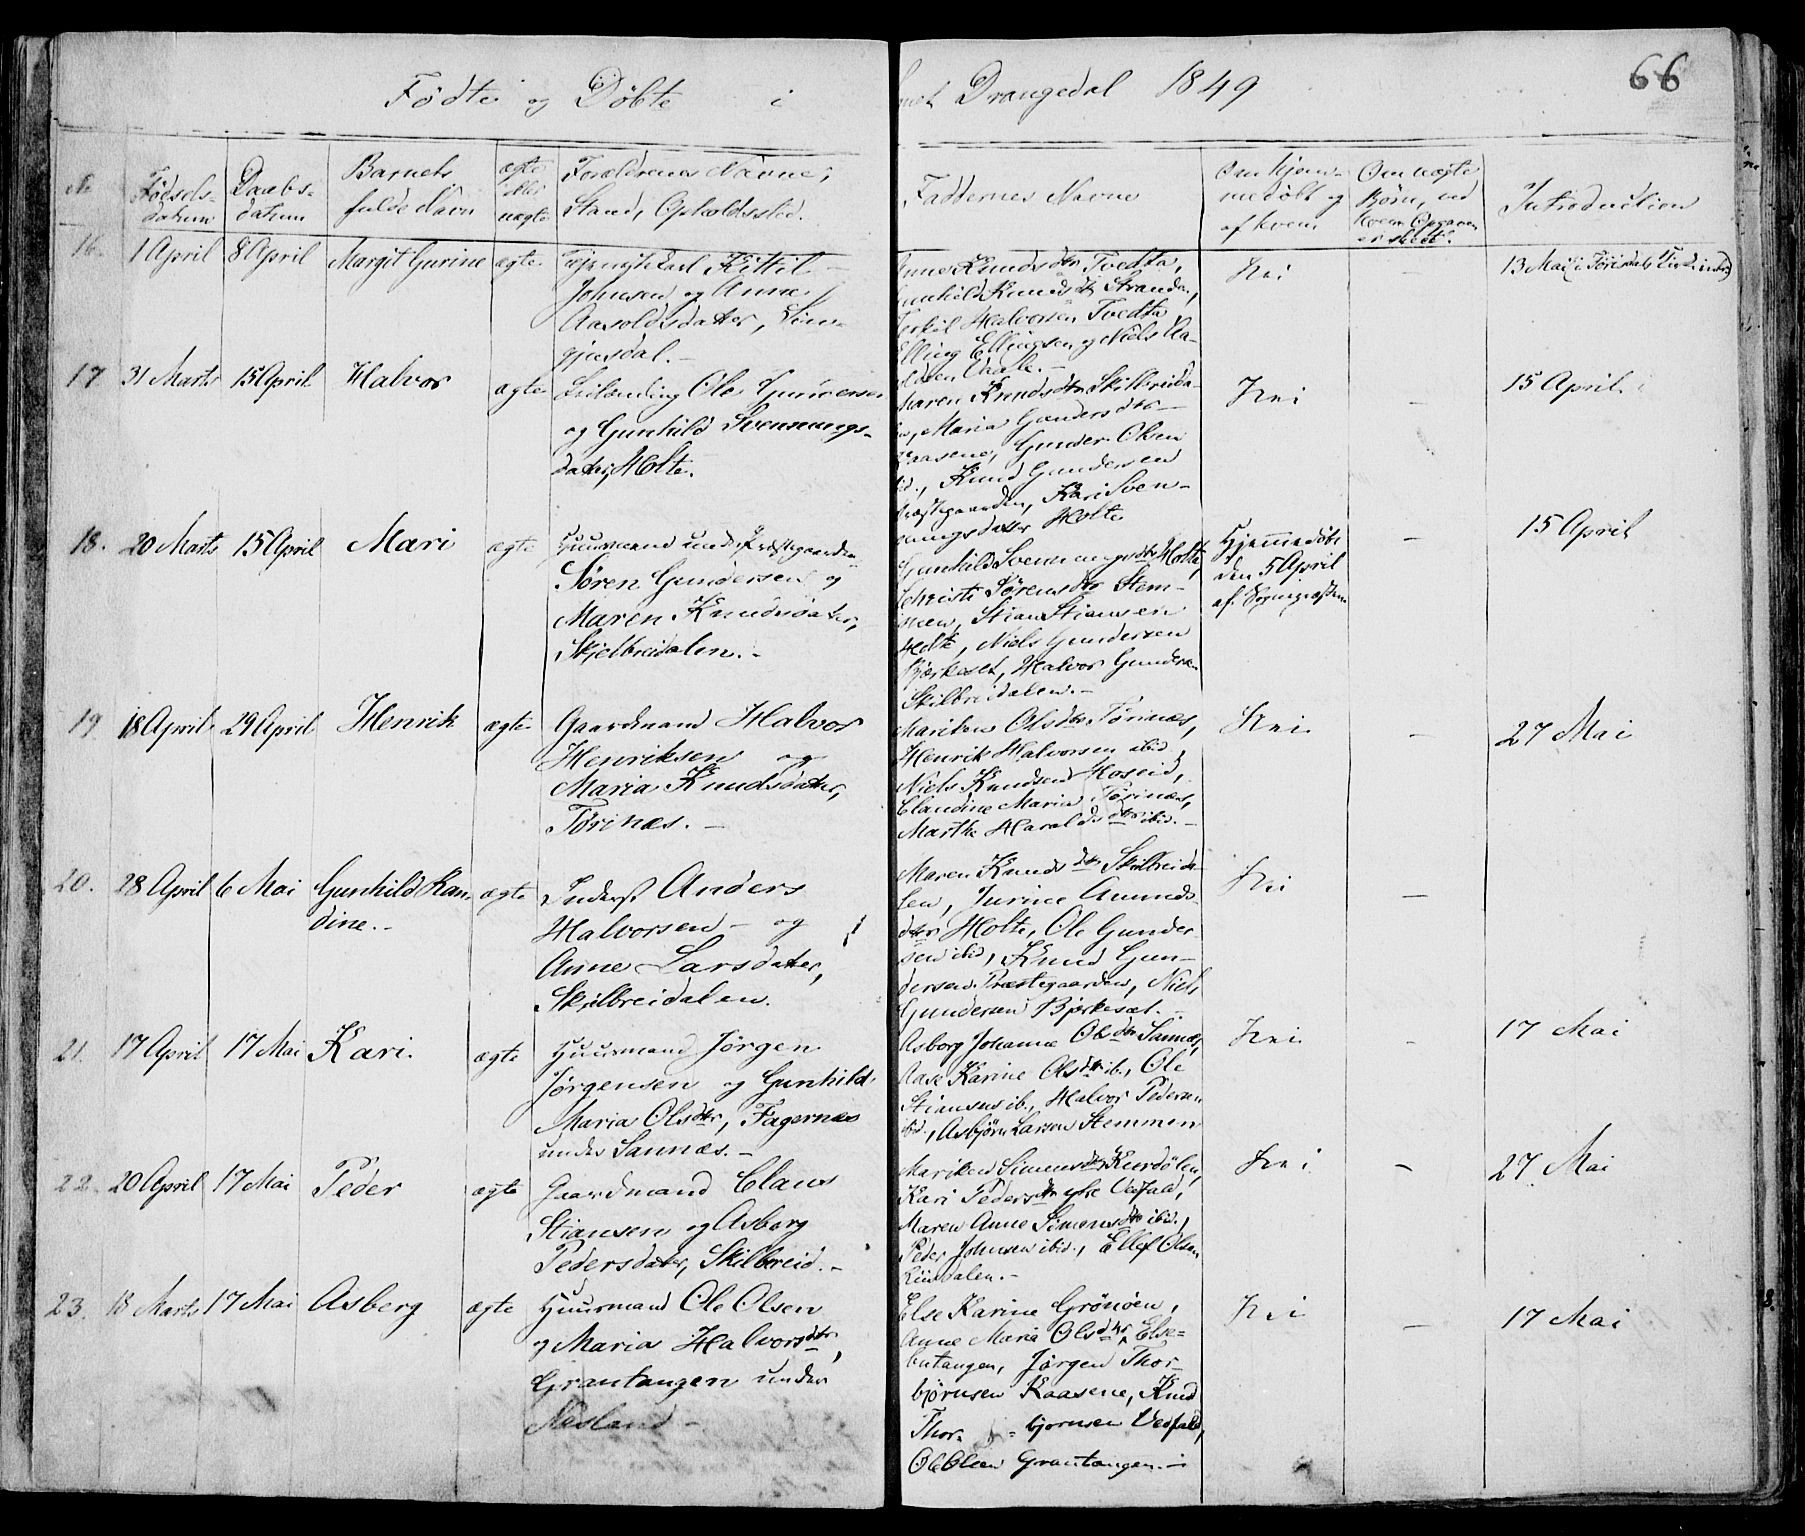 Födte og Döbte i
Drangedal 1849
66
No
Födsels-
datum
Daabs-
datum
Barnets
fulde Navn
ægte
eller
uægte
Forældrenes Navne,
Stand, Opholdssted.
Faddernes Navne
Om hjem-
medöbt og
af hvem
Om uægte
Börn, ved
Introduction
16. 1 April 8 April Margit Gurine ægte Kittil
Johnsen og Anne
Aasoldsdatter,
gjusdal.-
Anne Knudsdtr Tvedta,
Gunhild Knudsdtr Stranda,
Terkil Halvorsen Tvedta,
Elling Ellingsen og Niels
Nei
-
13 Mai i Törisdal
17 31 Marts 15 April Halvor ægte Leilænding Ole Gundersen
og Gunhild Svennungs-
datter, Holte.
Maren Knudsdtr Skilbreida-
len, Maria Gundersdtr
Kaasene, Gunder Olsen
ibid., Knud Gundersen
Præstegaarden, Kari Sven-
nungsdatter Holte
Nei
-
15 April
18. 20 Marts 15 April Mari ægte Huusmand under Præstegaarden
Sören Gundersen og
Maren Knudsdatter,
Skjelbreidalen.-
Gunhild Svennungsdtr Holte,
Christi Sörensdtr Stem-
men, Stian Stiansen
Holte, Niels Gundersen
Bjerkeset, Halvor Gundersen
Skilbreidalen.-
Hjemmedöbt
den 5 April
af Sognepræsten
-
15 April
19 18 April 29 April Henrik ægte Gaardmand Halvor
Henriksen og
Maria Knudsdatter,
Törinæs.-
Mariken Olsdtr Törinæs,
Henrik Halvorsen ibid,
Niels Knudsen Moseid,
Claudine Maria Törinæs,
Marthe Haraldsdtr ibid.-
Nei
-
27 Mai
20. 28 April 6 Mai Gunhild Kan-
dine.-
ægte Inderst Anders
Halvorsen - og
Anne Larsdatter,
Skjelbreidalen.
Maren Knudsdtr Skilbreida-
len, Gurine Amunds-
dtr Holte, Ole Gunder-
sen ibid, Knud Gun-
dersen Præstegaarden, Niels
Gundersen Bjerkesæt.
Nei
-
21. 17 April 17 Mai Kari. ægte Huusmand Jörgen
Jörgensen og Gunhild
Maria Olsdtr, Fagernæs
under Sannæs.-
Asborg Johanne Olsdtr Sannæs,
Aase Karine Olsdtr ib., Ole
Stiansen ib., Halvor Pedersen
ibid., Asbjörn Larsen Stemmen
Nei
-
17 Mai
22. 20 April 17 Mai Peder ægte Gaardmand Claus
Stiansen og Asborg
Pedersdatter, Skilbreid.-
Mariken Simensdtr Kurdölen,
Kari Pedersdtr Vefald,
Maren Anne Simensdtr ibid.,
Peder Johnsen ibid., Ellef Olsen
Nei
-
27 Mai
23. 18 Marts 17 Mai Asberg ægte Huusmand Ole Olsen
og Maria Halvorsdtr,
Grantangen under
Nesland-
Else Karine Grönöen,
Anne Maria Olsdtr, Else-
butangen, Jörgen Thor-
björnsen Kaasene, Knud
Thor- björnsen Vefald,
Ole Olsen Grantangen.-
Nei
-
17 Mai